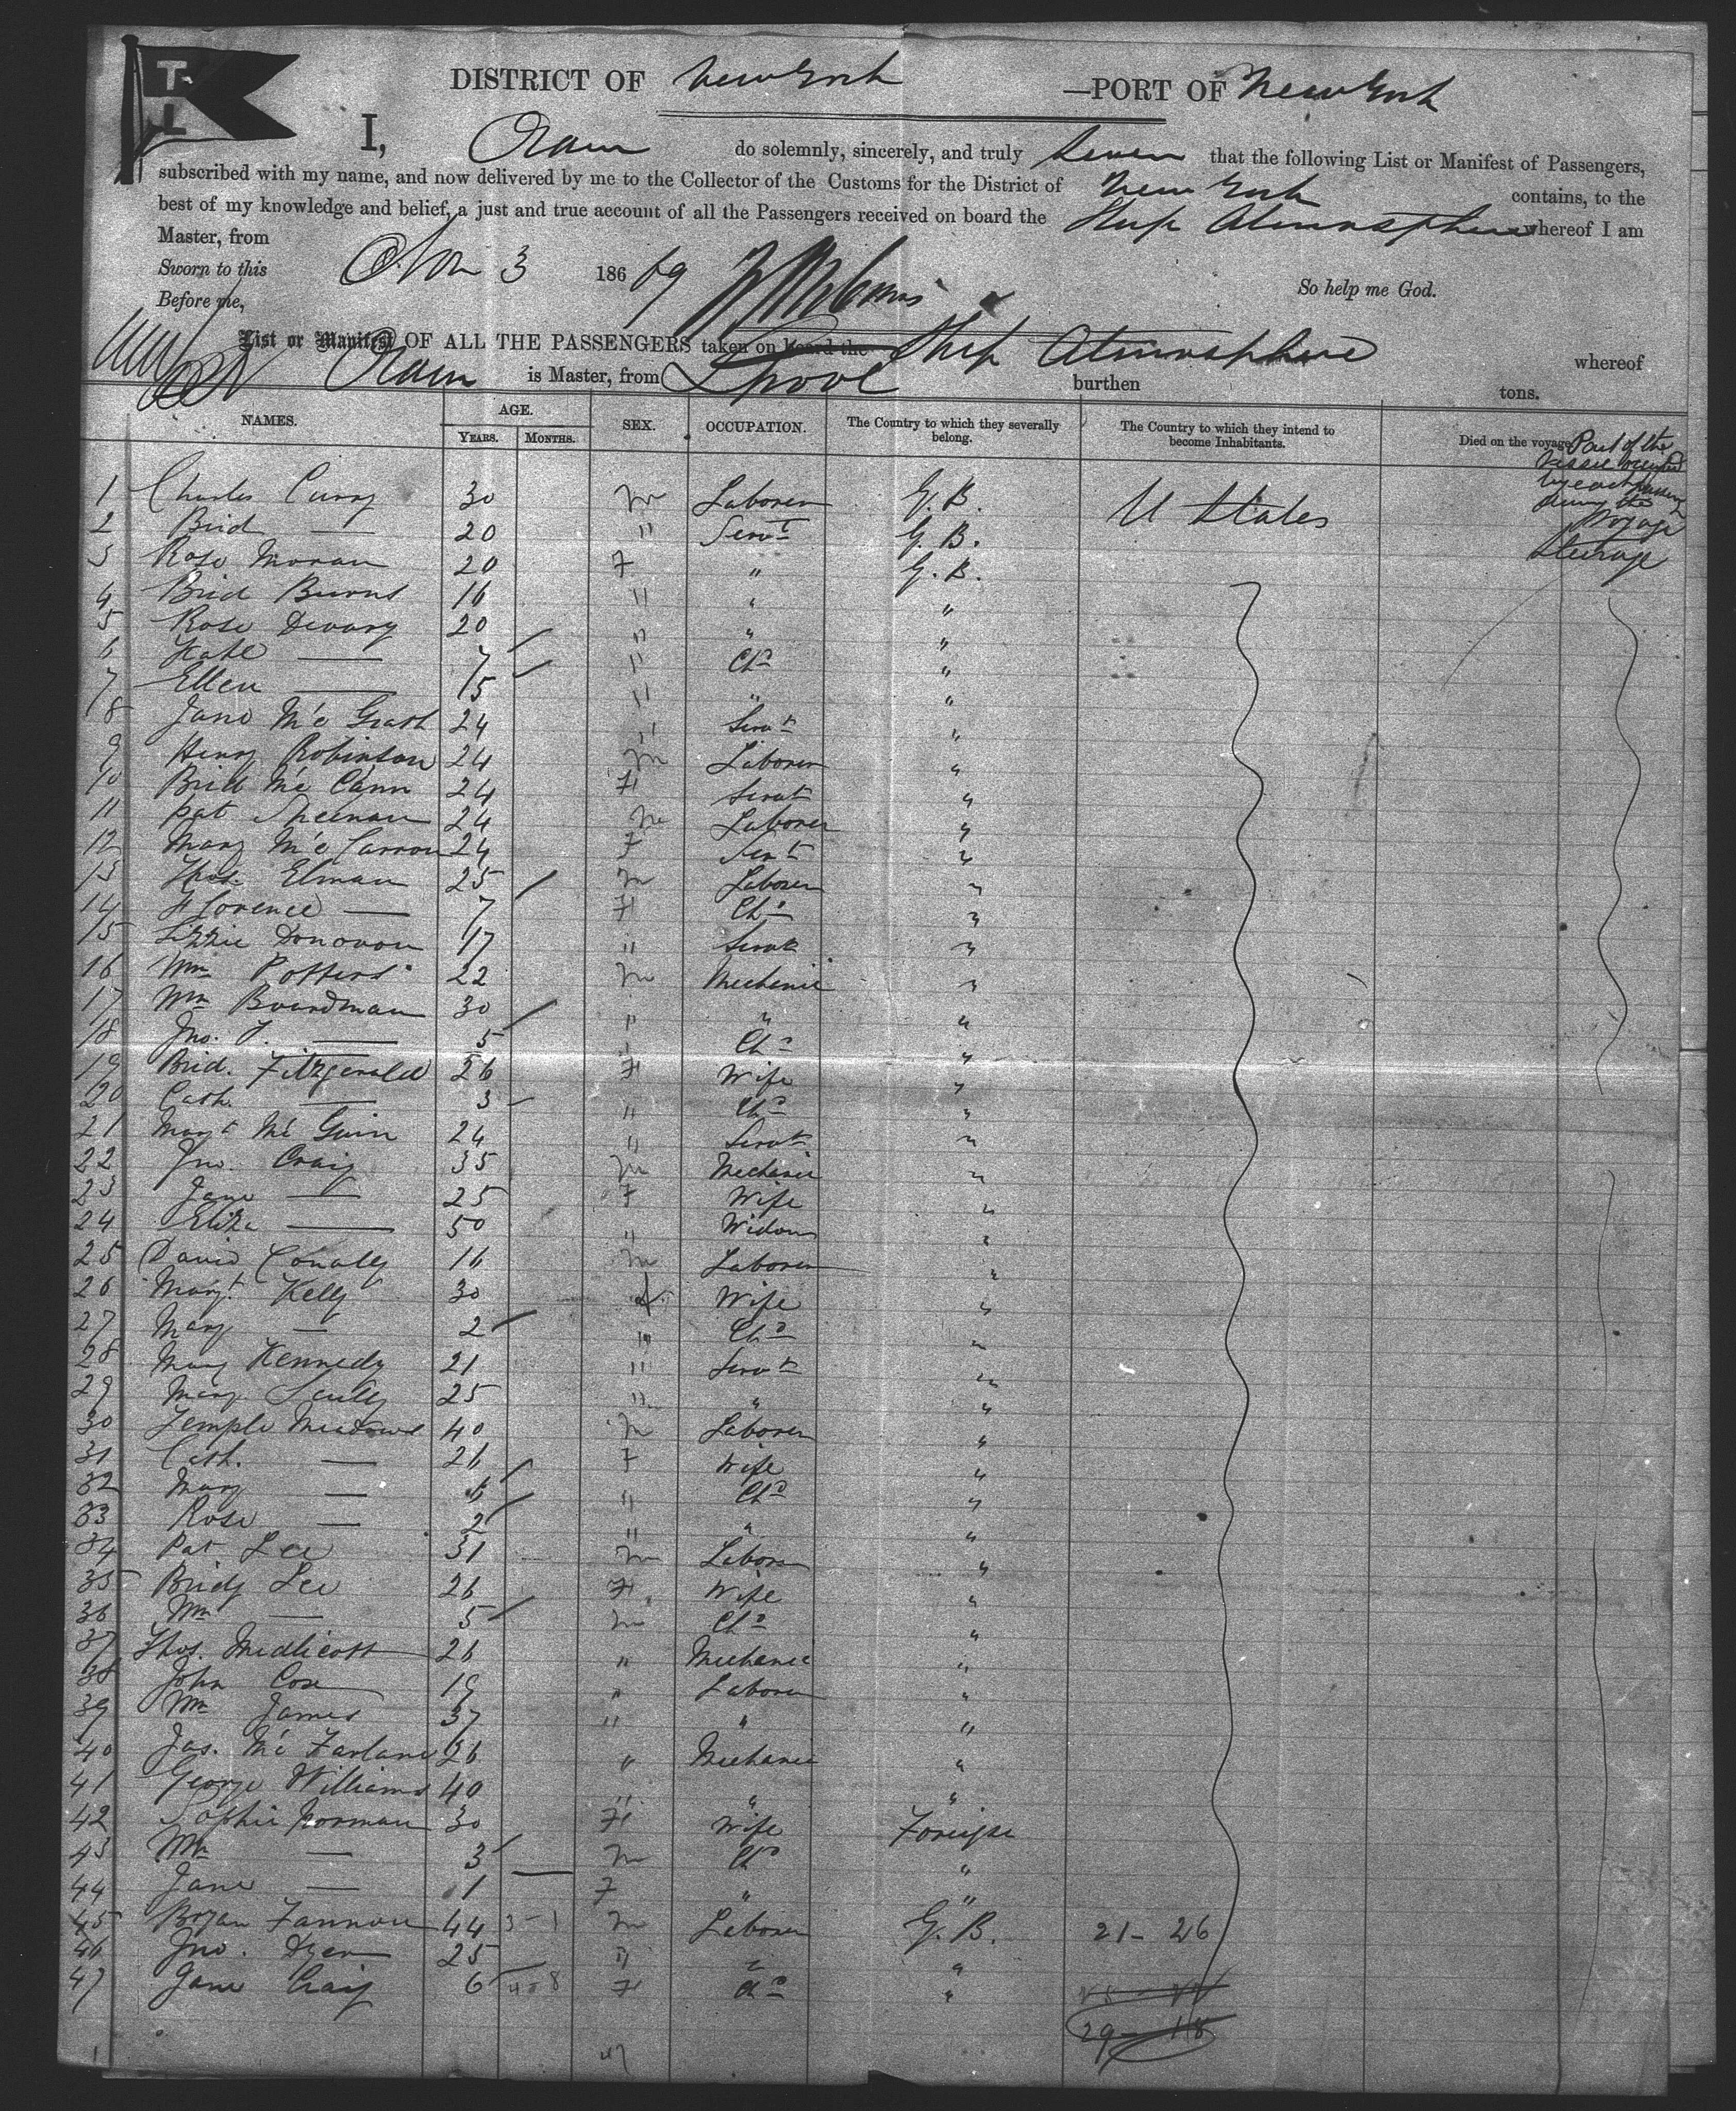 T.
L
DISTRICT OF New York —PORT OF New York
I, do solemnly, sincerely, and truly swear that the following List or Manifest of Passengers,
subscribed with my name, and now delivered by me to the Collector of the Customs for the District of New York contains, to the
best of my knowledge and belief, a just and true account of all the Passengers received on board the Ship Atmosphere whereof I am
Master, from
Sworn to this Nov 3 186 69 So help me God.
Before me,
List or Manifest OF ALL THE PASSENGERS taken on board the Ship Atmosphere whereof
is Master, from Lpool burthen tons.
NAMES. AGE. YEARS. MONTHS. SEX. OCCUPATION. The Country to which they severally belong. The Country to which they intend to become Inhabitants. Died on the voyage. Part of the vessel occupied by each passenger during the voyage
1 Charles Curry 30 m Laborer G. B. U States
2 Brid — 20 " Servt G. B. Steerage
3 Rose Moran 20 F " G. B.
4 Brid Burns 16 " " "
5 Rose Devany 20 " " "
6 Kate — 7 " Chd "
7 Ellen — 15 " " "
8 Jane McGrath 24 " Servt "
9 Henry Robinson 24 m Laborer "
10 Brid McCann 24 F Servt "
11 Pat Sheenan 24 m Laborer "
12 Mary McCarron 24 F Servt "
13 Thos. Elman 25 m Laborer "
14 Florence — 7 F Chd "
15 Lizzie Donovon 17 " Servt "
16 Wm Potters 22 m Mechanic "
17 Wm Boardman 30 " " "
18 Jno. T. — 5 " Chd "
19 Brid. Fitzgerald 26 F Wife "
20 Cath. — 3 " Chd "
21 Margt McGuin 24 " Servt "
22 Jno. Craig 35 m Mechanic "
23 Jane — 25 F Wife "
24 Eliza — 50 " Widow "
25 David Conally 16 m Laborer "
26 Margt. Kelly 30 f Wife "
27 Mary — 2 " Chd "
28 Mary Kennedy 21 " Servt "
29 Mary Scully 25 " " "
30 Temple Meadows 40 m Laborer "
31 Cath. — 26 F Wife "
32 Mary — 6 " Chd "
33 Rose — 2 " " "
34 Pat Lee 31 m Laborer "
35 Bridg Lee 26 F Wife "
36 Wm — 5 m Chd "
37 Thos. Midlicott 26 " Mechanic "
38 John Cox 19 " Laborer "
39 Wm James 37 " " "
40 Jas. McFarlane 26 " Mechanic "
41 George Williams 40 " " "
42 Sophie Norman 30 F Wife Foreign
43 Wm — 3 m Chd "
44 Jane — 1 F " "
45 Bryan Fannon 44 3-1 m Laborer G. B. 21- 26
46 Jno. Dyer 25 " " "
47 Jane Craig 6 F Chd "
29- 18
47